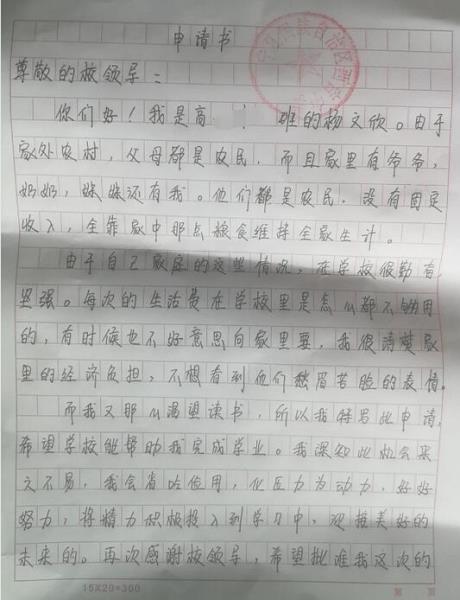 申请书
尊敬的校领导：
你们好！我是高 班的杨文欣。由于
家处农村，父母都是农民，而且家里有爷爷，
奶奶，妹妹还有我。他们都是农民，没有固定
收入，全靠家中那点粮食维持全家生计。
由于自己家庭的这些情况，在学校很勤奋
坚强。每次的生活费在学校里是怎么都不够用
的，有时候也不好意思向家里要，我很清楚家
里的经济负担，不想看到他们愁眉苦脸的表情。
而我又那么渴望读书，所以我特写此申请，
希望学校能帮助我完成学业。我深知此机会来
之不易，我会省吃俭用，化压力为动力，好好
努力，将精力积极投入到学习中，迎接美好的
未来的。再次感谢校领导，希望批准我这次的
15×20=300
第 页